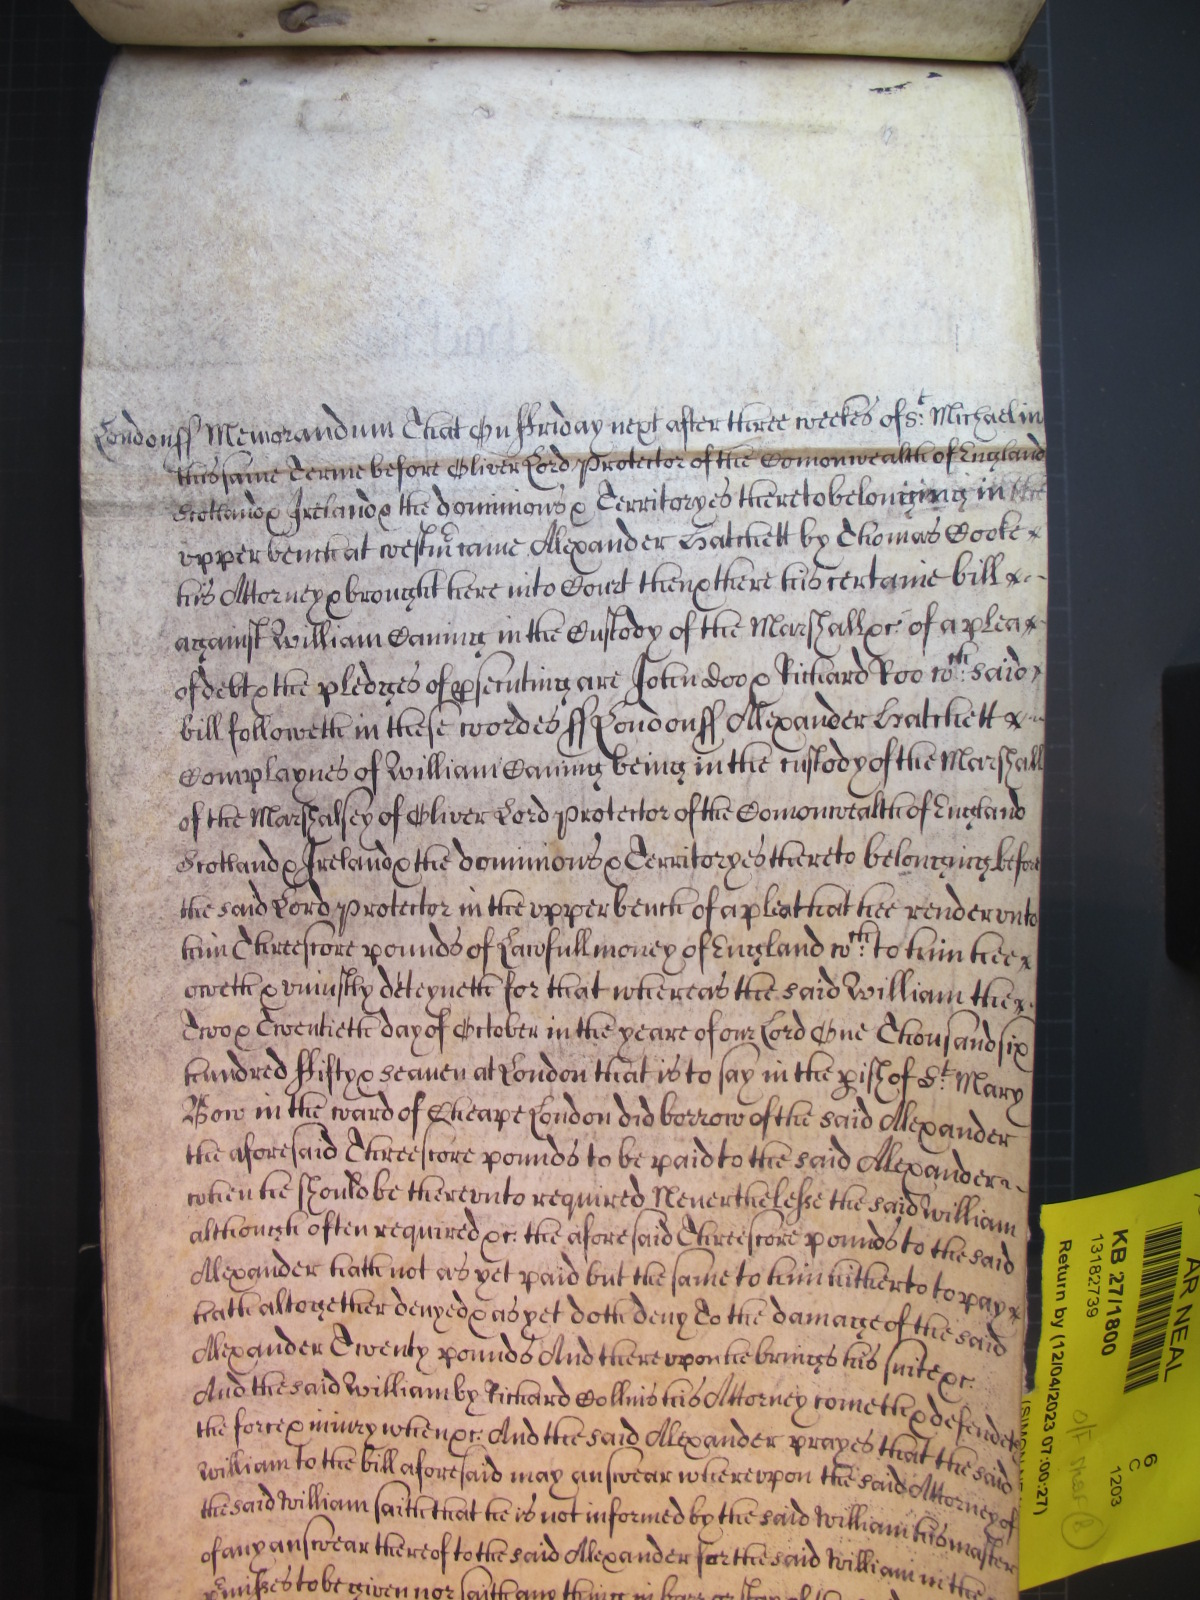 Londonff Memorandum That On Friday next after three weekes of St. Michael in
this same Terme before Oliver Lord Protector of the Comonwealth of England
Scotland & Ireland & the dominions & Territoryes thereto belonging in the
vpper bench at westmr came Alexander Hatchett by Thomas Cooke
his Attorney & brought here into Court then & there his certaine bill
against William Caning in the Custody of the Marshall &c: of a plea
of debt & the pledges of psecuting are John Doo & Richard Roo wth: said
bill followeth in these wordes ff Londonff Alexander Hatchett
Complaynes of William Caning being in the custody of the Marshall
of the Marshalsey of Oliver Lord Protector of the Comonwealth of England
Scotland & Ireland & the dominions & Territoryes thereto belonging before
the said Lord Protector in the vpper bench of a plea that hee render vnto
him Threescore pounds of Lawfull money of England wch: to him hee
oweth & vniustly deteyneth for that whereas the said William the
Two & Twentieth day of October in the yeare of our Lord One Thousand six
hundred Fifty & seaven at London that is to say in the pish of St. Mary
Bow in the ward of Cheape London did borrow of the said Alexander
the aforesaid Threescore pounds to be paid to the said Alexander
when he should be therevnto required Neverthelesse the said William
although often required &c: the aforesaid Threescore pounds to the said
Alexander hath not as yet paid but the same to him hitherto to pay
hath altogether denyed & as yet doth deny To the damage of the said
Alexander Twenty pounds And therevpon he brings his suite &c:
And the said William by Richard Collins his Attorney cometh & defendeth
the force & iniury when &c: And the said Alexander prayes that the said
William to the bill aforesaid may answear wherevpon the said Attorney of
the said William saith that he is not informed by the said William his master
of any answear thereof to the said Alexander for the said William in the
pmisses to be given nor saith any thing in barr or stay of the
AR NEAL
KB 27/1800
13182739
Return by (12/04/2023 07:00:27)
6
C
1203